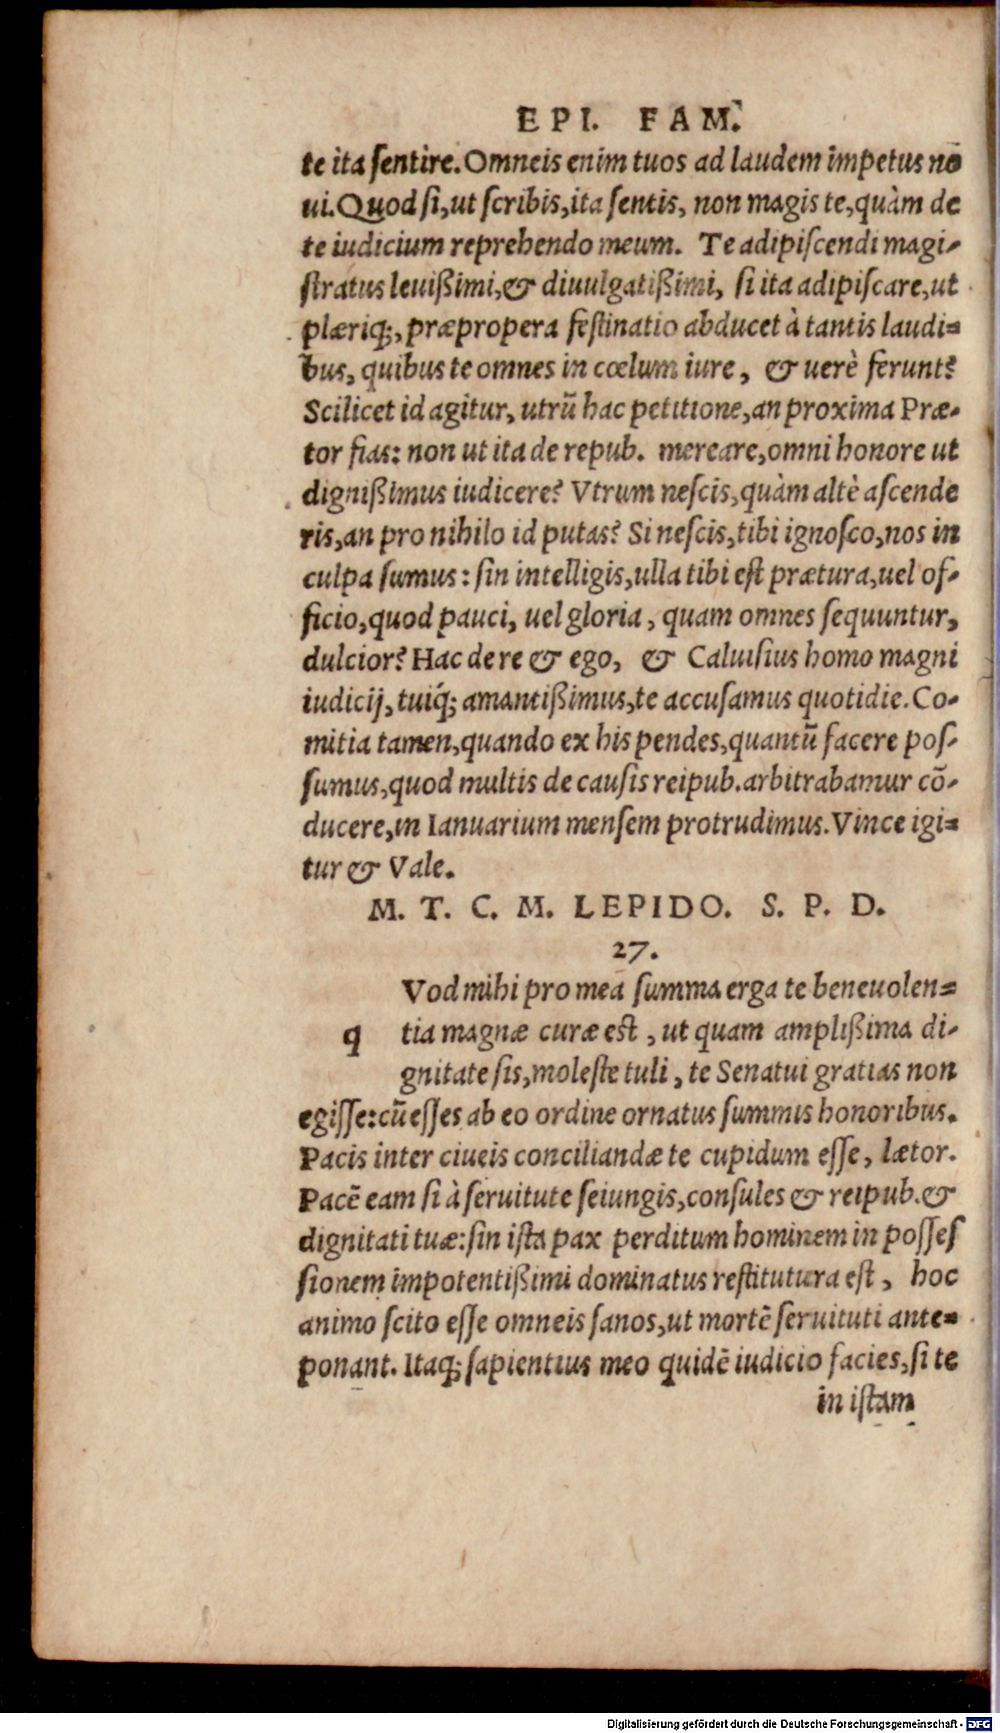 EPI. FAM.
te ita ſentire. Omneis enim tuos ad laudem impetus no
ui. Quod ſi, ut ſcribis, ita ſentis, non magis te, quàm de
te iudicium reprehendo meum. Te adipiſcendi magi-
ſtratus leuißimi, & diuulgatißimi, ſi ita adipiſcare, ut
plæriq;, præpropera feſtinatio abducet à tantis laudi-
bus, quibus te omnes in cœlum iure, & uerè ferunt?
Scilicet id agitur, utrũ hac petitione, an proxima Præ-
tor fias: non ut ita de repub. mereare, omni honore ut
dignißimus iudicere? Vtrum neſcis, quàm altè aſcende
ris, an pro nihilo id putas? Si neſcis, tibi ignoſco, nos in
culpa ſumus: ſin intelligis, ulla tibi eſt prætura, uel of-
ficio, quod pauci, uel gloria, quam omnes ſequuntur,
dulcior? Hac de re & ego, & Caluiſius homo magni
iudicij, tuiq́; amantißimus, te accuſamus quotidie. Co-
mitia tamen, quando ex his pendes, quantũ facere poſ-
ſumus, quod multis de cauſis reipub. arbitrabamur cõ-
ducere, in Ianuarium menſem protrudimus. Vince igi-
tur & Vale.
M. T. C. M. LEPIDO. S. P. D.
27.
Vod mihi pro mea ſumma erga te beneuolen-
q tia magnæ curæ eſt, ut quam amplißima di-
gnitate ſis, moleſte tuli, te Senatui gratias non
egiſſe: cũ eſſes ab eo ordine ornatus ſummis honoribus.
Pacis inter ciueis conciliandæ te cupidum eſſe, lætor.
Pacẽ eam ſi à ſeruitute ſeiungis, conſules & reipub. &
dignitati tuæ: ſin iſta pax perditum hominem in poſſeſ
ſionem impotentißimi dominatus reſtitutura eſt, hoc
animo ſcito eſſe omneis ſanos, ut mortẽ ſeruituti ante-
ponant. Itaq; ſapientius meo quidẽ iudicio facies, ſi te
in iſtam
Digitalisierung gefördert durch die Deutsche Forschungsgemeinschaft - DFG